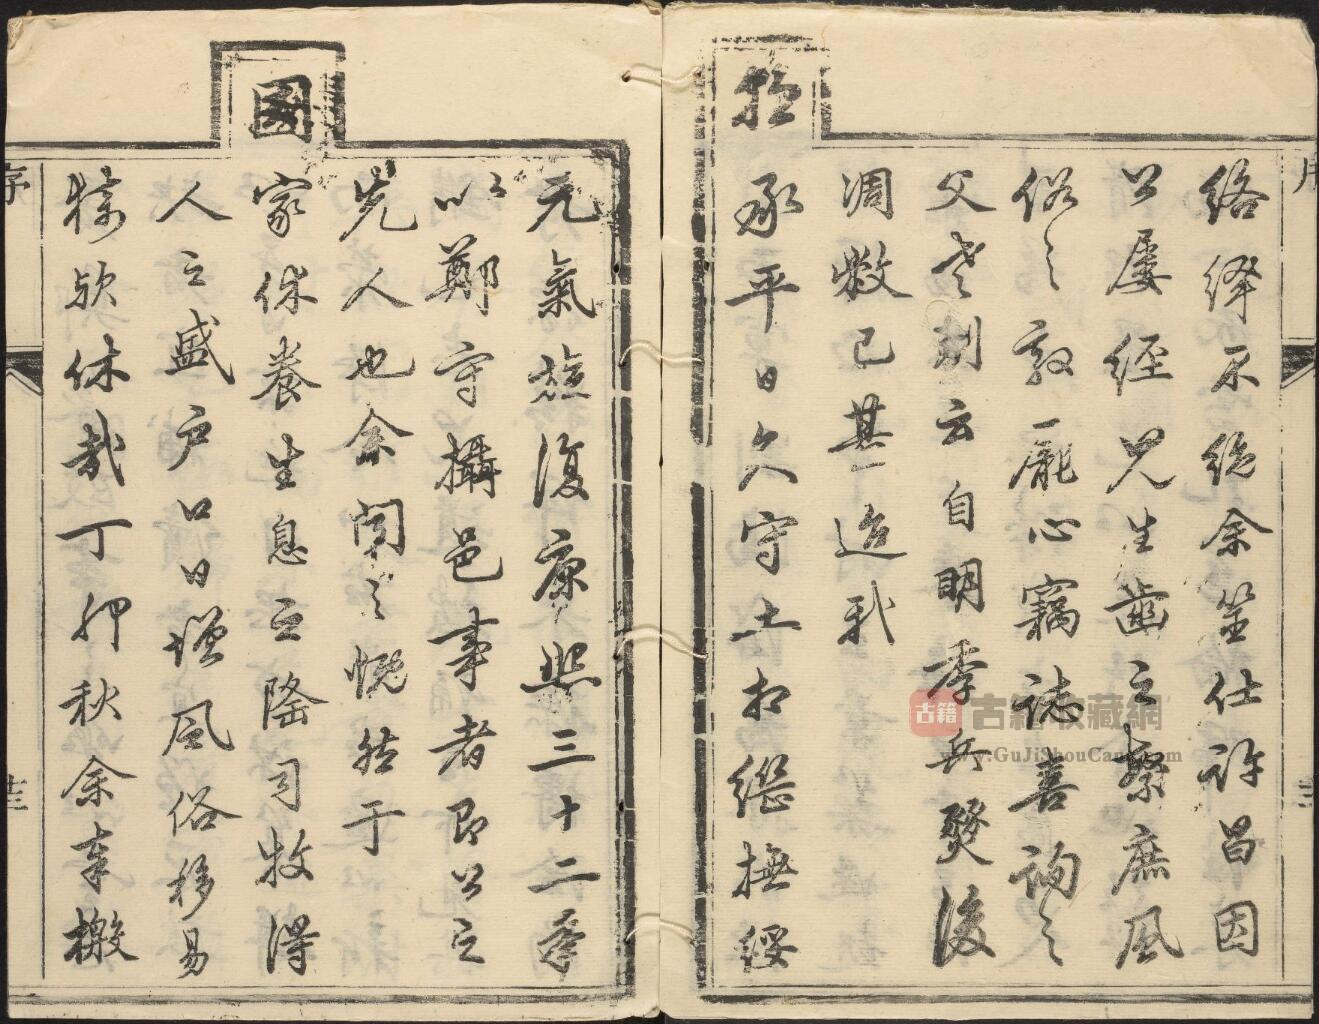 絡繹不絕余筮仕許昌因
公屡經見生齒之繁庶風
俗之敦龐心竊誌喜詢之
父老則云自明季兵燹後
凋敝已甚迨我
承平日久守土相繼撫綏
元氣旋復康熙三十二年
以鄭守攝邑事者即公之
先人也余聞之慨然于
國
家休養生息之隆司牧得
人之盛户口日增風俗移易
猗歟休哉丁卯秋余奉檄
序
古籍
古籍收藏網
www.GuJiShouCang.com